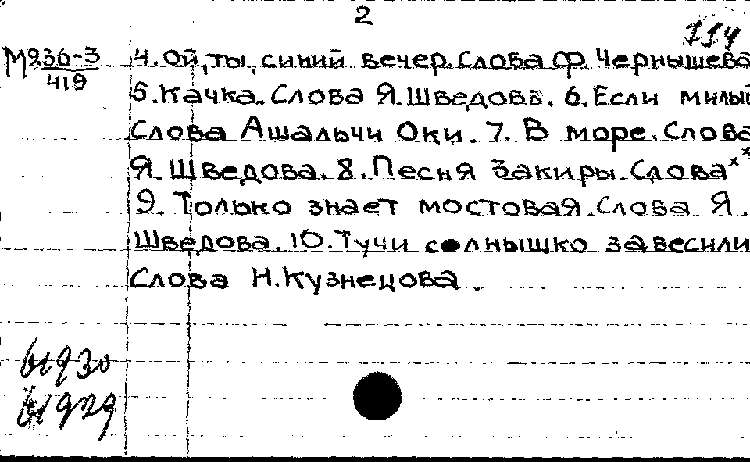 2
114
М236-3
419
4. Ой, ты, синий вечер. Слова Ф. Чернышева
5. Качка. Слова Я. Шведова. 6. Если милый
Слова Ашальчи Оки. 7. В море. Слова
Я. Шведова. 8. Песня Закиры. Слова xx
9. Только знает мостовая. Слова Я.
Шведова. 10. Тучи солнышко завесили
Слова Н. Кузнецова.
61930
61929